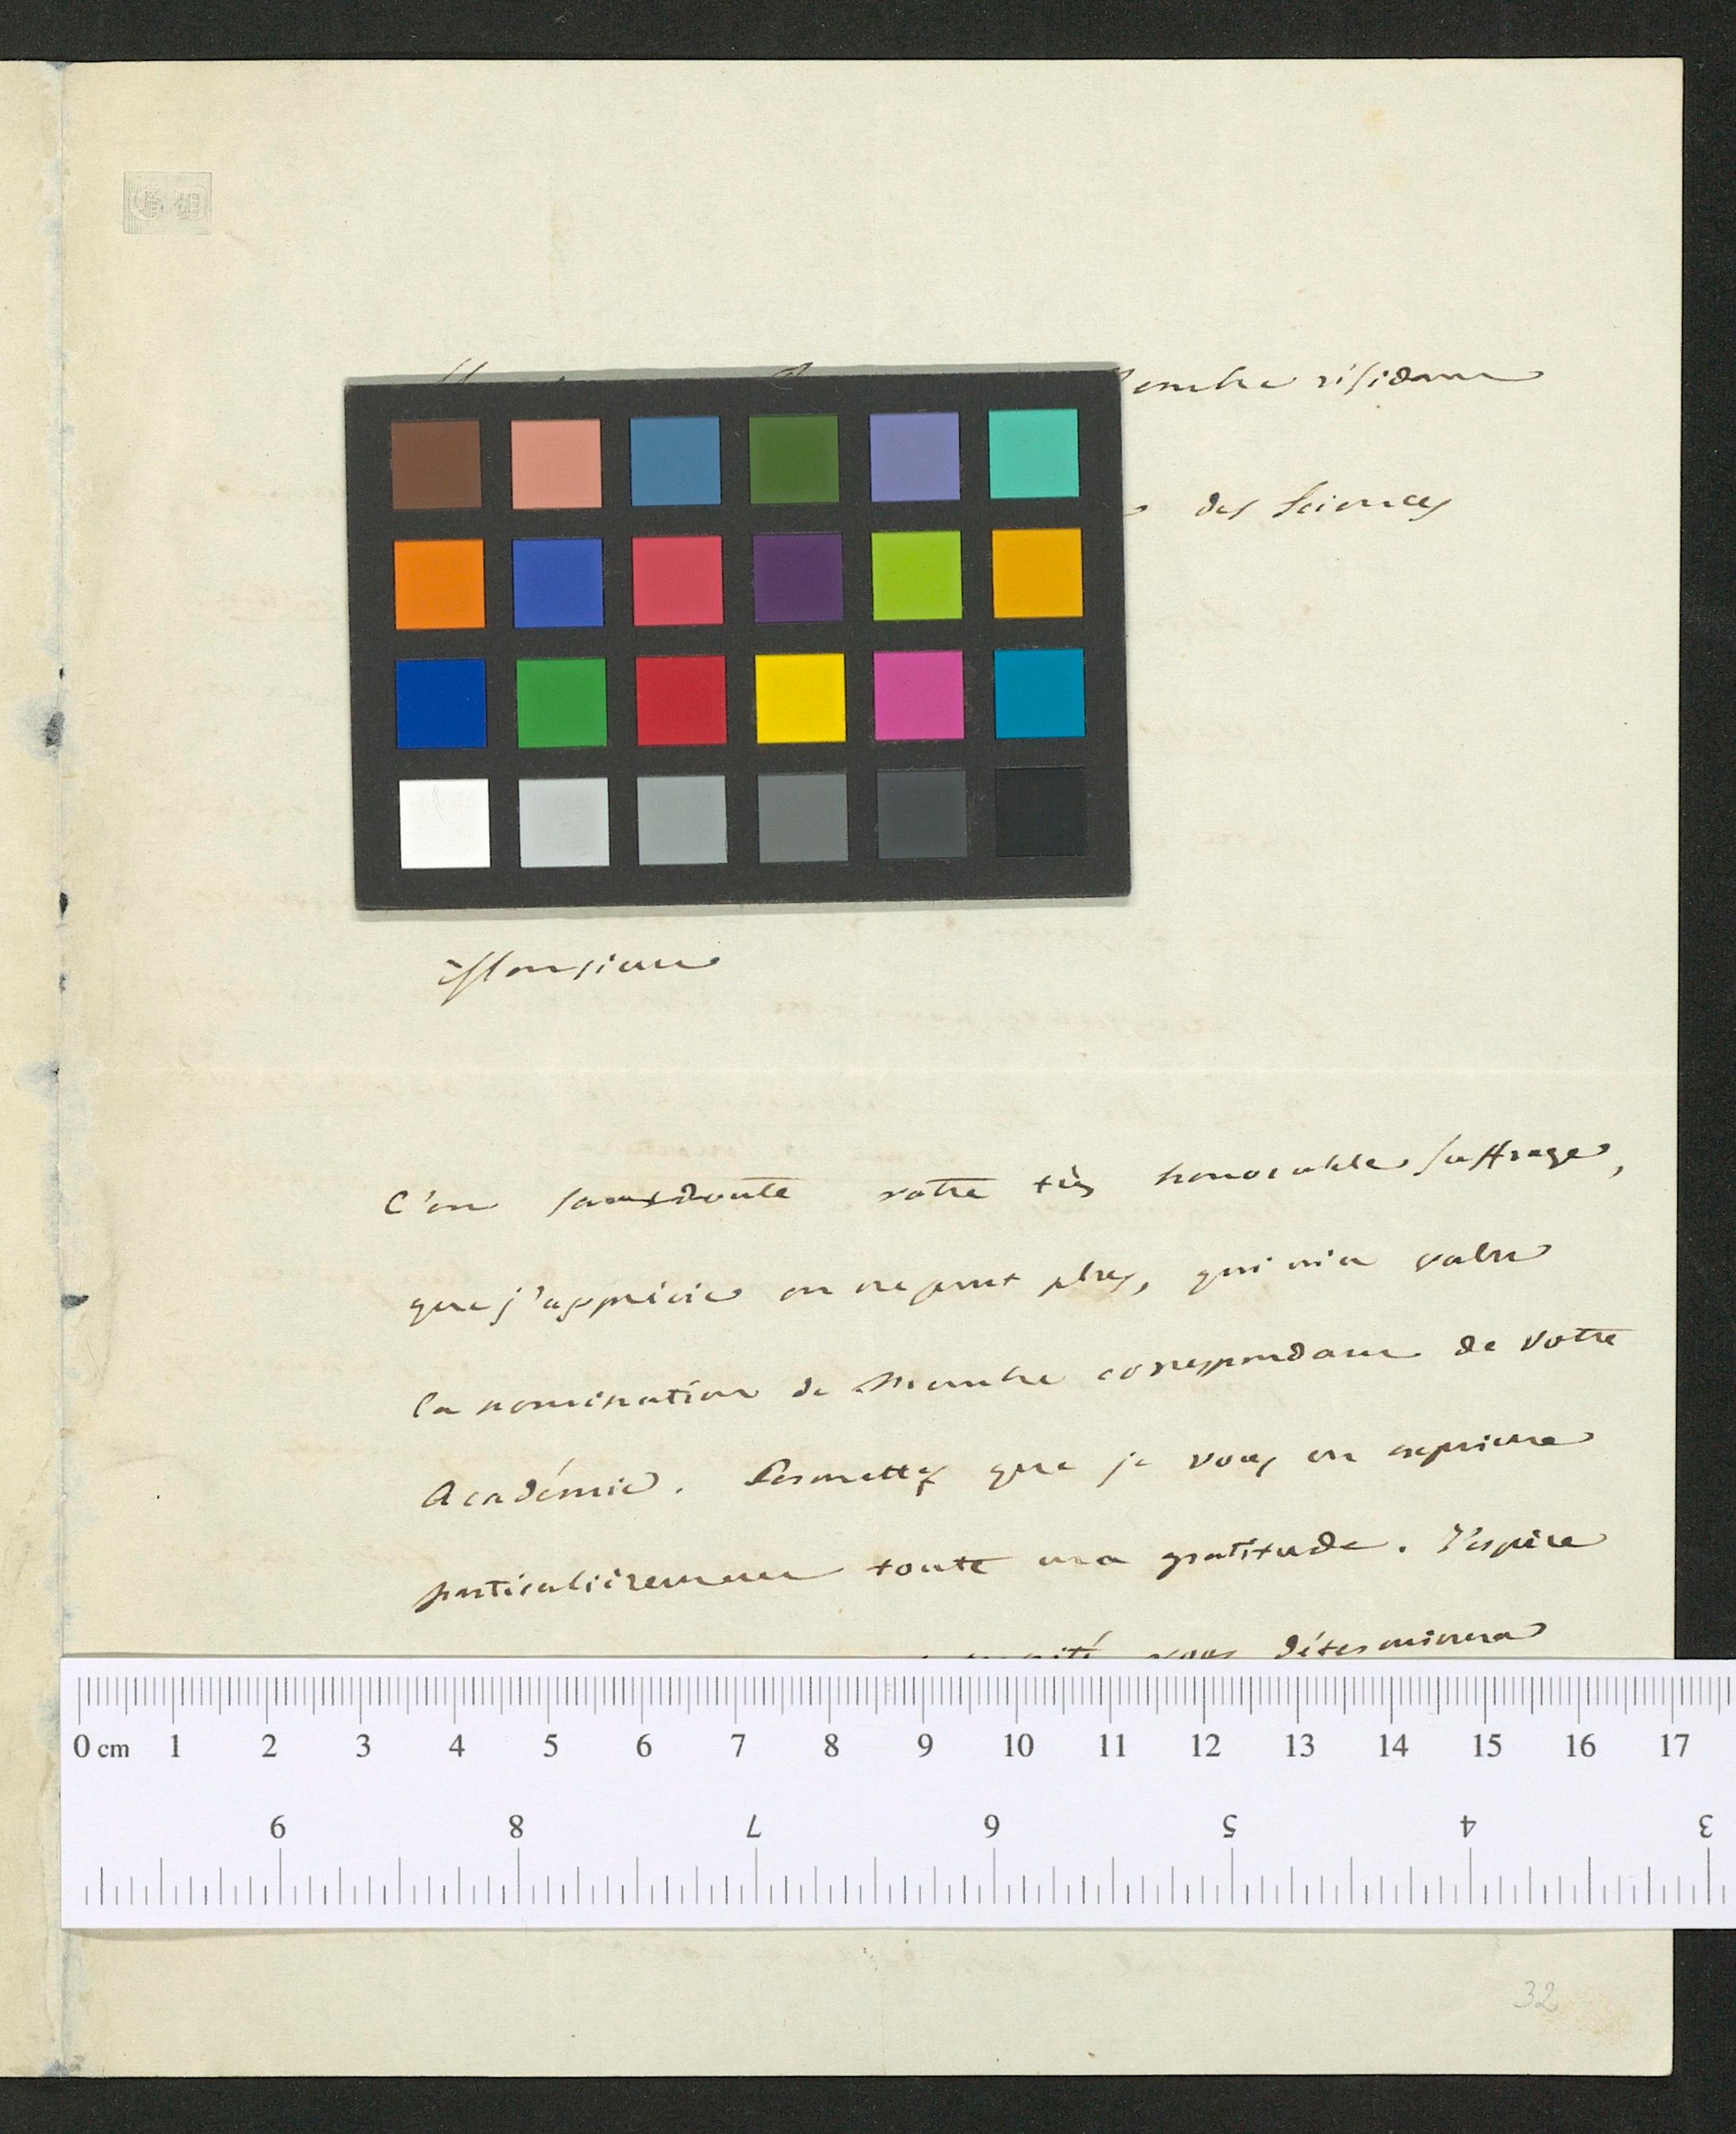 résidant
des Sciences
Monsieur
C'en sans doute votre très honorable suffrage,
que j'apprécie on ne peut plus, qui m'a valu
la nomination de Membre correspondant de Votre
Académie. Permettez que je vous en exprime
particulièrement toute ma gratitude. J'espère
vous déterminera
0 cm 1 2 3 4 5 6 7 8 9 10 11 12 13 14 15 16 17
9 8 7 6 5 4 3
32